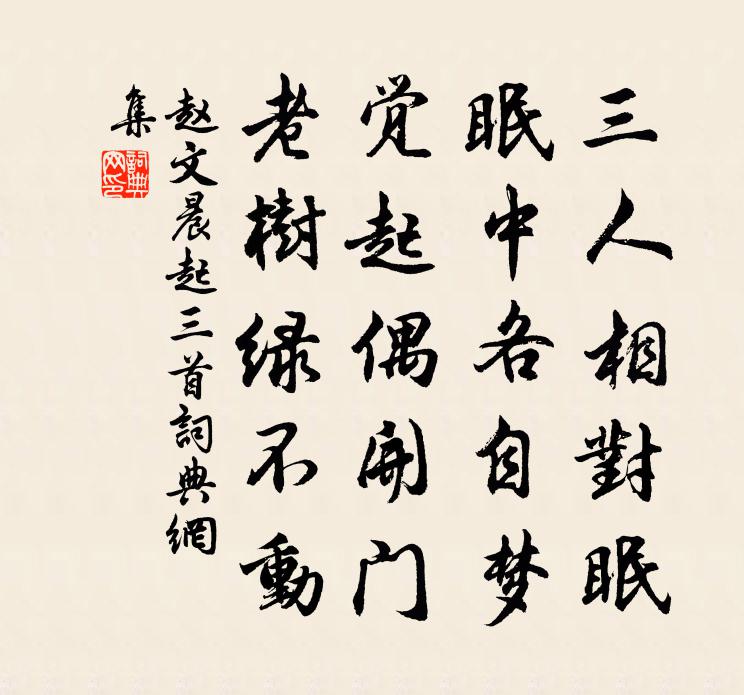 三人相對眠
眠中各自梦
觉起偶開门
老樹緑不動
赵文晨起三首詞典網
集
詞典網印